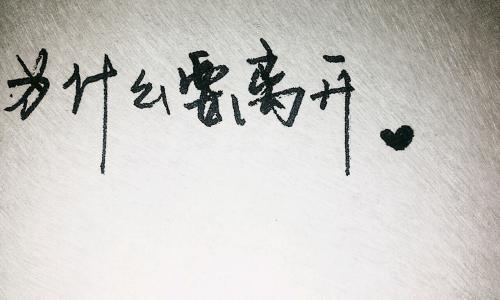 为什么要离开